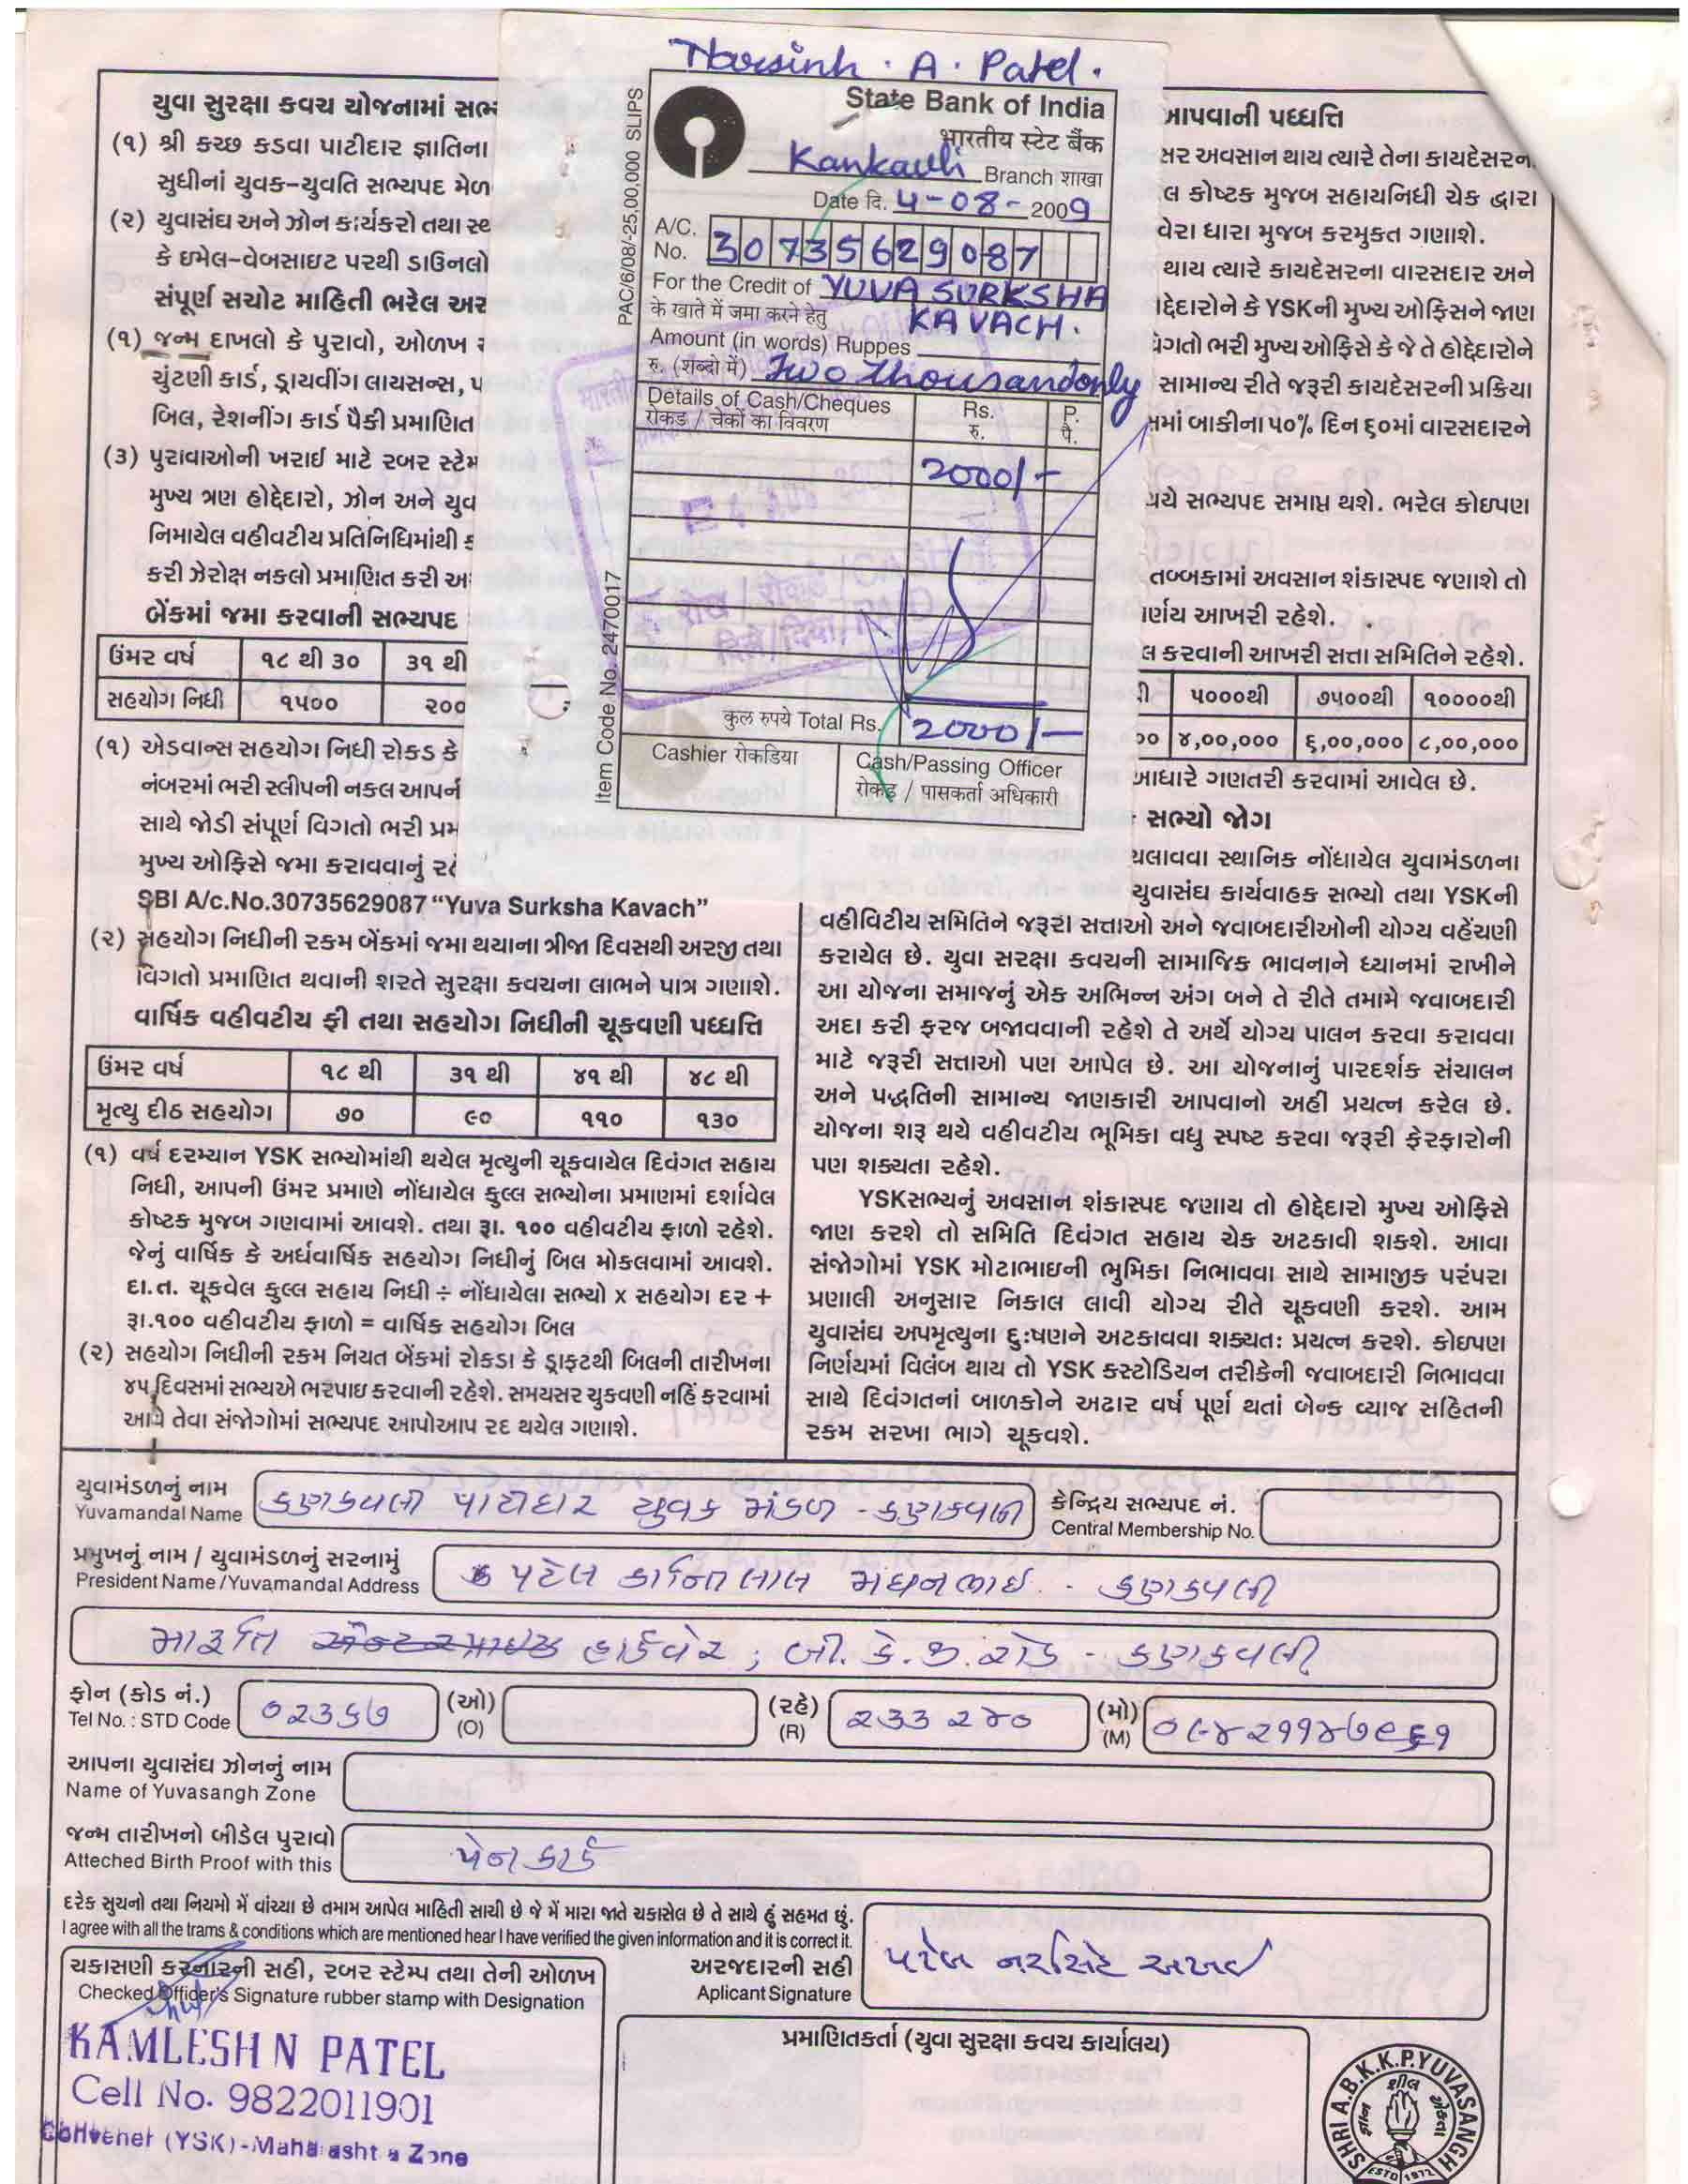 Narsinh . A . Patel .
State Bank of India
भारतीय स्टेट बैंक
Kankavli Branch शाखा
Date दि. 4-08-2009
A/C. No. 30735629087
For the Credit of YUVA SURKSHA
के खाते में जमा करने हेतु KAVACH.
Amount (in words) Ruppes
रु. (शब्दो में) Two thousand only
Details of Cash/Cheques Rs. P.
रोकड / चेकों का विवरण रु. पै.
2000/-
कुल रुपये Total Rs. 2000/-
Cashier रोकडिया
Cash/Passing Officer
रोकड़ / पासकर्ता अधिकारी
PAC/6/08/-25,00,000 SLIPS
Item Code No. 2470017
યુવા સુરક્ષા કવચ યોજનામાં
(૧) શ્રી કચ્છ કડવા પાટીદાર જ્ઞાતિના
સુધીનાં યુવક-યુવતિ સભ્યપદ
(૨) યુવાસંઘ અને ઝોન કાર્યકરો તથા
કે ઇમેલ-વેબસાઇટ પરથી
સંપૂર્ણ સચોટ માહિતી ભરેલ
(૧) જન્મ દાખલો કે પુરાવો, ઓળખ
ચુંટણી કાર્ડ, ડ્રાયવીંગ લાયસન્સ,
બિલ, રેશનીંગ કાર્ડ પૈકી પ્રમાણિત
(૩) પુરાવાઓની ખરાઈ માટે રબર
મુખ્ય ત્રણ હોદ્દેદારો, ઝોન અને
નિમાયેલ વહીવટીય પ્રતિનિધિમાંથી
કરી ઝેરોક્ષ નકલો પ્રમાણિત કરી
બેંકમાં જમા કરવાની સભ્યપદ
ઉંમર વર્ષ ૧૮ થી ૩૦ ૩૧ થી
સહયોગ નિધી ૧૫૦૦ ૨૦૦
(૧) એડવાન્સ સહયોગ નિધી રોકડ કે
નંબરમાં ભરી સ્લીપની નકલ
સાથે જોડી સંપૂર્ણ વિગતો ભરી
મુખ્ય ઓફિસે જમા કરાવવાનું
SBI A/c.No.30735629087 “Yuva Surksha Kavach”
(૨) સહયોગ નિધીની રકમ બેંકમાં જમા થયાના ત્રીજા દિવસથી અરજી તથા
વિગતો પ્રમાણિત થવાની શરતે સુરક્ષા કવચના લાભને પાત્ર ગણાશે.
વાર્ષિક વહીવટીય ફી તથા સહયોગ નિધીની ચૂકવણી પધ્ધતિ
ઉંમર વર્ષ ૧૮ થી ૩૧ થી ૪૧ થી ૪૮ થી
મૃત્યુ દીઠ સહયોગ ૭૦ ૯૦ ૧૧૦ ૧૩૦
(૧) વર્ષ દરમ્યાન YSK સભ્યોમાંથી થયેલ મૃત્યુની ચૂકવાયેલ દિવંગત સહાય
નિધી, આપની ઉંમર પ્રમાણે નોંધાયેલ કુલ્લ સભ્યોના પ્રમાણમાં દર્શાવેલ
કોષ્ટક મુજબ ગણવામાં આવશે. તથા રૂા. ૧૦૦ વહીવટીય ફાળો રહેશે.
જેનું વાર્ષિક કે અર્ધવાર્ષિક સહયોગ નિધીનું બિલ મોકલવામાં આવશે.
દા.ત. ચૂકવેલ કુલ્લ સહાય નિધી ÷ નોંધાયેલા સભ્યો x સહયોગ દર +
રૂા.૧૦૦ વહીવટીય ફાળો = વાર્ષિક સહયોગ બિલ
(૨) સહયોગ નિધીની રકમ નિયત બેંકમાં રોકડા કે ડ્રાફ્ટથી બિલની તારીખના
૪૫ દિવસમાં સભ્યએ ભરપાઇ કરવાની રહેશે. સમયસર ચુકવણી નહિં કરવામાં
આવે તેવા સંજોગોમાં સભ્યપદ આપોઆપ રદ થયેલ ગણાશે.
આપવાની પધ્ધતિ
અવસાન થાય ત્યારે તેના
કોષ્ટક મુજબ સહાયનિધી ચેક દ્વારા
વેરા ધારા મુજબ કરમુકત ગણાશે.
થાય ત્યારે કાયદેસરના વારસદાર અને
કે YSKની મુખ્ય ઓફિસને જાણ
ભરી મુખ્ય ઓફિસે કે જે તે હોદ્દેદારોને
સામાન્ય રીતે જરૂરી કાયદેસરની પ્રક્રિયા
બાકીના ૫૦% દિન ૬૦માં વારસદારને
સભ્યપદ સમાપ્ત થશે. ભરેલ કોઇપણ
તબ્બકામાં અવસાન શંકાસ્પદ જણાશે તો
આખરી રહેશે.
કરવાની આખરી સત્તા સમિતિને રહેશે.
૫૦૦૦થી ૭૫૦૦થી ૧૦૦૦૦થી
૪,૦૦,૦૦૦ ૬,૦૦,૦૦૦ ૮,૦૦,૦૦૦
આધારે ગણતરી કરવામાં આવેલ છે.
સભ્યો જોગ
ચલાવવા સ્થાનિક નોંધાયેલ યુવામંડળના
યુવાસંઘ કાર્યવાહક સભ્યો તથા YSKની
વહીવિટીય સમિતિને જરૂરી સત્તાઓ અને જવાબદારીઓની યોગ્ય વહેંચણી
કરાયેલ છે. યુવા સરક્ષા કવચની સામાજિક ભાવનાને ધ્યાનમાં રાખીને
આ યોજના સમાજનું એક અભિન્ન અંગ બને તે રીતે તમામે જવાબદારી
અદા કરી ફરજ બજાવવાની રહેશે તે અર્થે યોગ્ય પાલન કરવા કરાવવા
માટે જરૂરી સત્તાઓ પણ આપેલ છે. આ યોજનાનું પારદર્શક સંચાલન
અને પદ્ધતિની સામાન્ય જાણકારી આપવાનો અહીં પ્રયત્ન કરેલ છે.
યોજના શરૂ થયે વહીવટીય ભૂમિકા વધુ સ્પષ્ટ કરવા જરૂરી ફેરફારોની
પણ શક્યતા રહેશે.
YSKસભ્યનું અવસાન શંકાસ્પદ જણાય તો હોદ્દેદારો મુખ્ય ઓફિસે
જાણ કરશે તો સમિતિ દિવંગત સહાય ચેક અટકાવી શકશે. આવા
સંજોગોમાં YSK મોટાભાઇની ભુમિકા નિભાવવા સાથે સામાજીક પરંપરા
પ્રણાલી અનુસાર નિકાલ લાવી યોગ્ય રીતે ચૂકવણી કરશે. આમ
યુવાસંઘ અપમૃત્યુના દુઃષણને અટકાવવા શક્યતઃ પ્રયત્ન કરશે. કોઇપણ
નિર્ણયમાં વિલંબ થાય તો YSK કસ્ટોડિયન તરીકેની જવાબદારી નિભાવવા
સાથે દિવંગતનાં બાળકોને અઢાર વર્ષ પૂર્ણ થતાં બેન્ક વ્યાજ સહિતની
રકમ સરખા ભાગે ચૂકવશે.
યુવામંડળનું નામ કણકવલી પાટીદાર યુવક મંડળ - કણકવલી કેન્દ્રિય સભ્યપદ નં.
Yuvamandal Name Central Membership No.
પ્રમુખનું નામ / યુવામંડળનું સરનામું પટેલ કાન્તિલાલ મઘનભાઇ - કણકવલી
President Name /Yuvamandal Address
મારૂતિ હાર્ડવેર ; બી. કે. જી. રોડ - કણકવલી
ફોન (કોડ નં.) ૦૨૩૬૭ (ઓ) (રહે) ૨૩૩૨૪૦ (મો) ૦૯૪૨૧૧૪૭૯૬૧
Tel No. : STD Code (O) (R) (M)
આપના યુવાસંઘ ઝોનનું નામ
Name of Yuvasangh Zone
જન્મ તારીખનો બીડેલ પુરાવો પેન કાર્ડ
Atteched Birth Proof with this
દરેક સુચનો તથા નિયમો મેં વાંચ્યા છે તમામ આપેલ માહિતી સાચી છે જે મેં મારા જાતે ચકાસેલ છે તે સાથે હું સહમત છું.
I agree with all the trams & conditions which are mentioned hear I have verified the given information and it is correct it.
ચકાસણી કરનારની સહી, રબર સ્ટેમ્પ તથા તેની ઓળખ
Checked Officer's Signature rubber stamp with Designation
અરજદારની સહી પટેલ નરસિંહ અખઇ
Aplicant Signature
KAMLESH N PATEL
Cell No. 9822011901
Convener (YSK)-Maharashtra Zone
પ્રમાણિતકર્તા (યુવા સુરક્ષા કવચ કાર્યાલય)
SHRI A.B.K.K.P.YUVASANGH
ESTD 1972